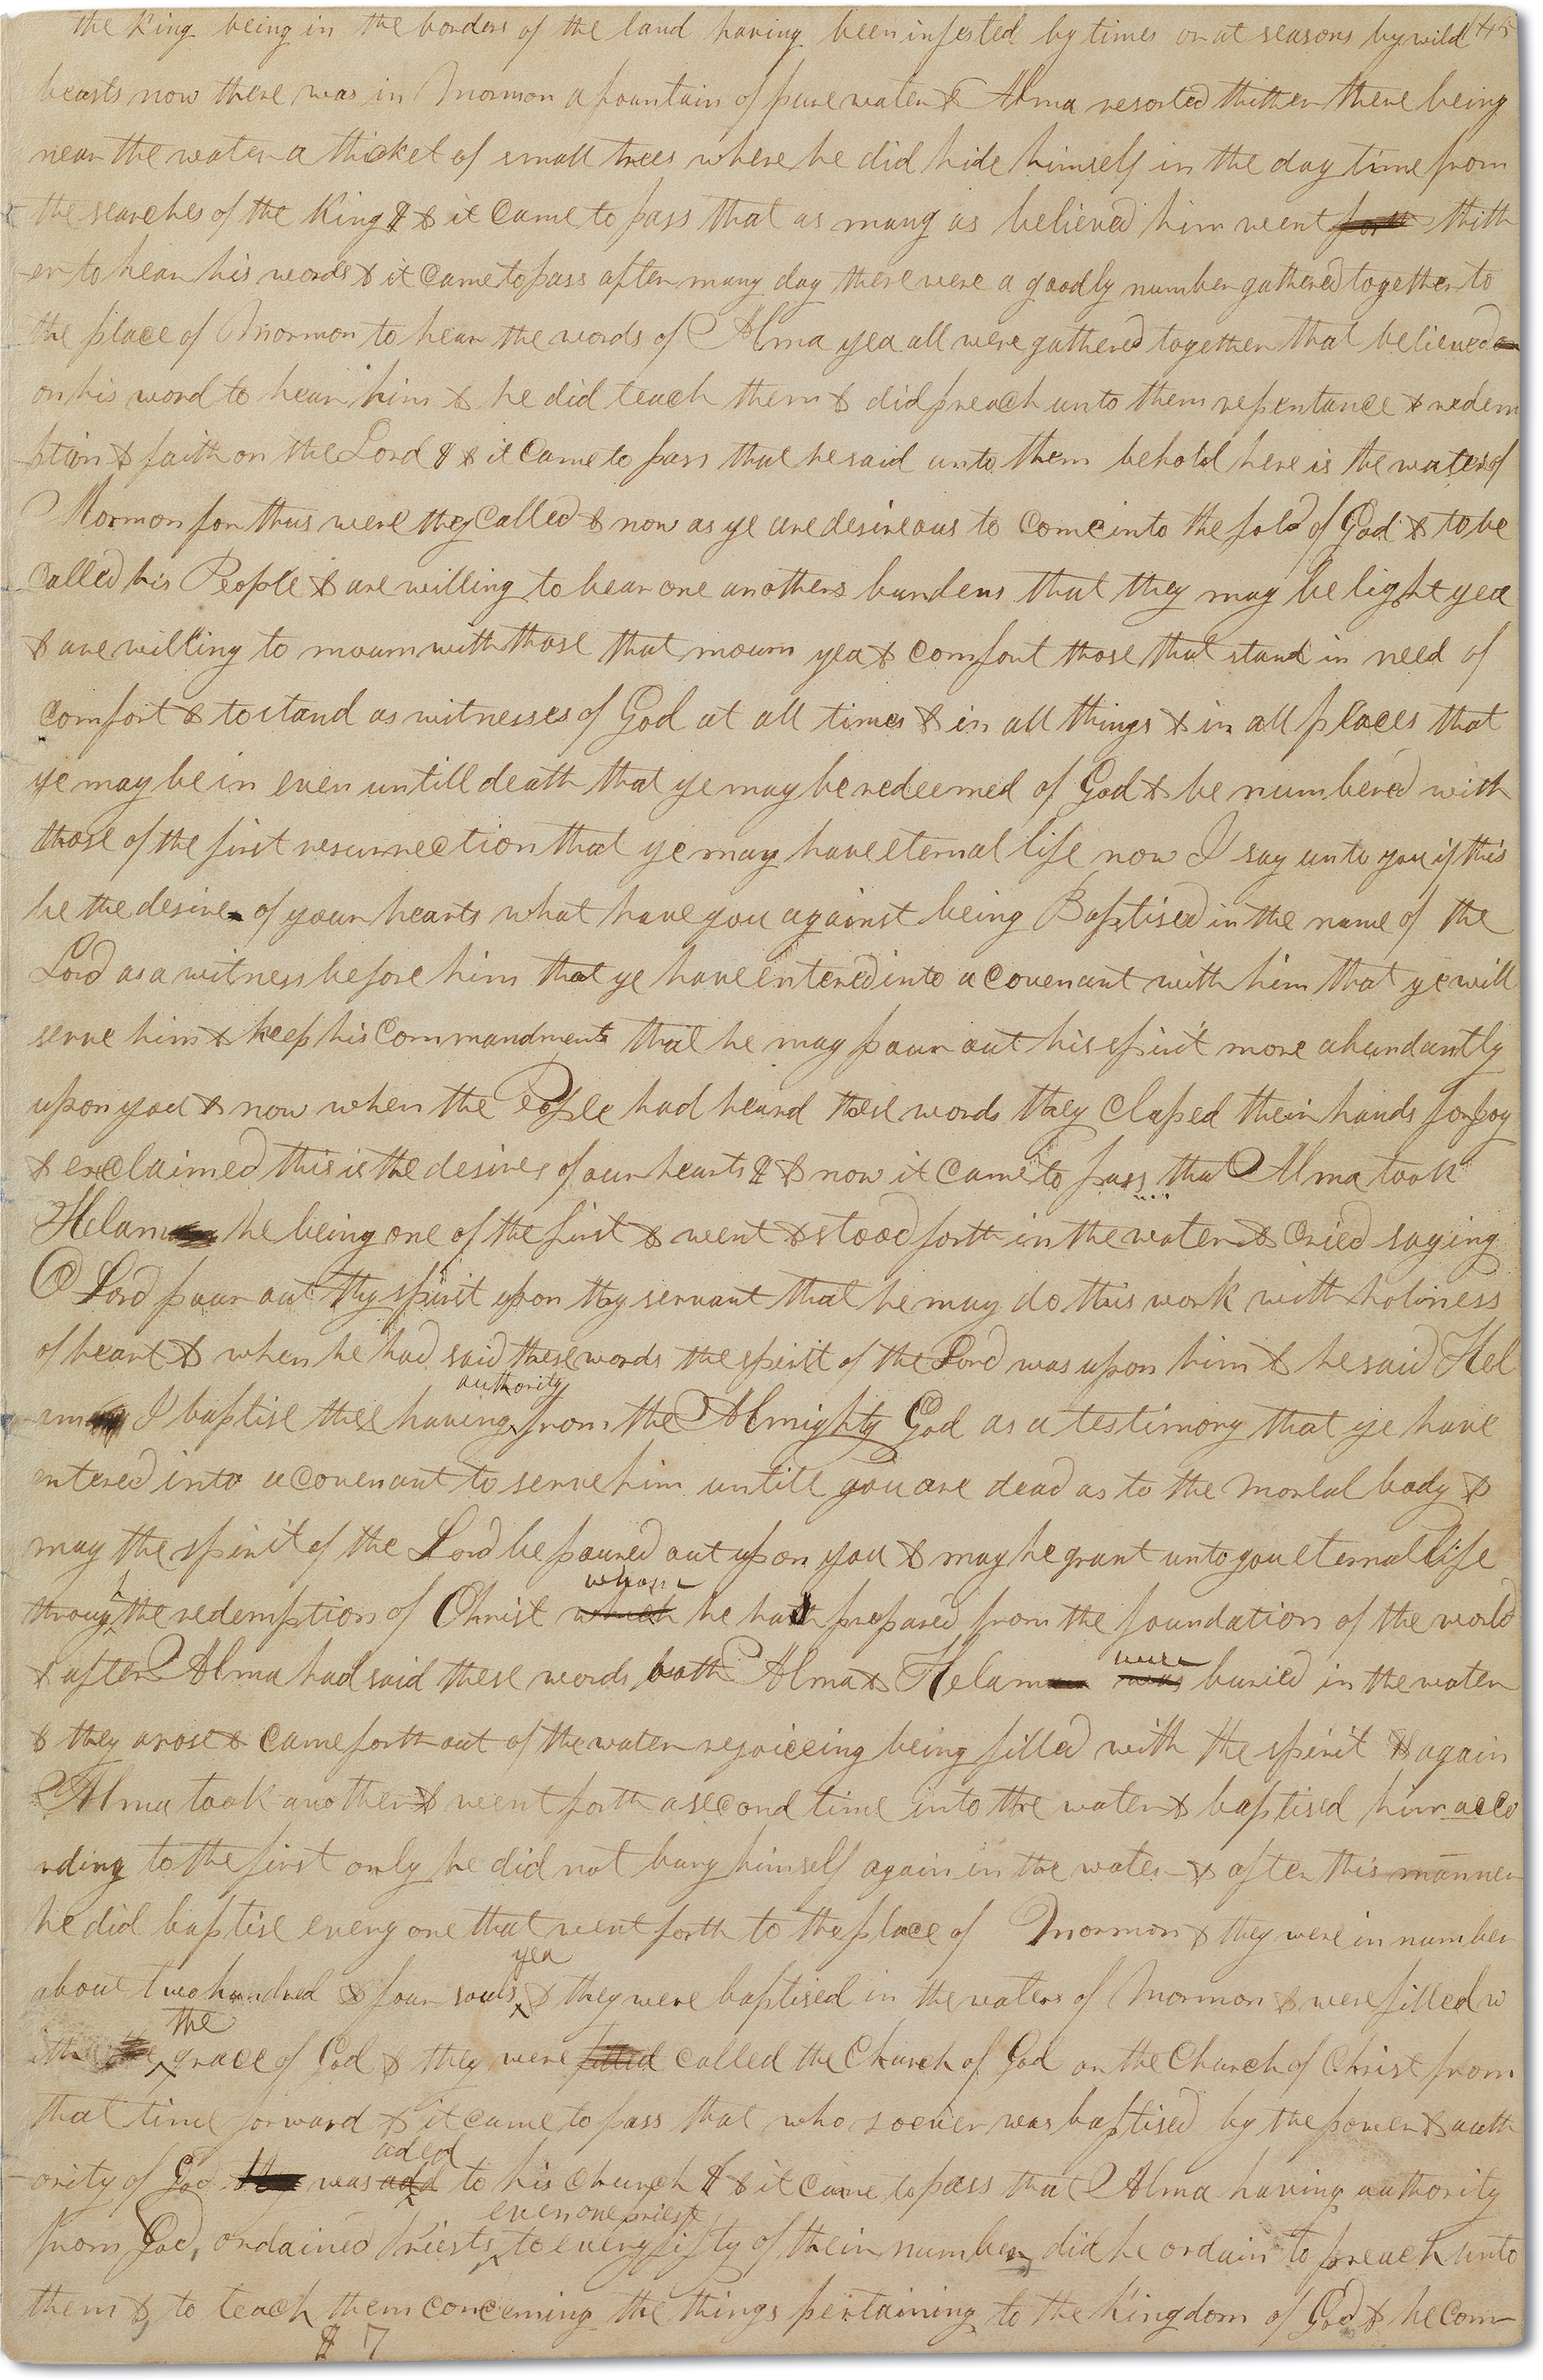 the King being in the borders of the land having been infested by times or at seasons by wild 145
beasts now there was in Mormon a fountain of pure water & Alma resorted thither there being
near the water a thicket of small trees where he did hide himself in the day time from
the searches of the King & & it came to pass that as many as believed him went forth thith
-er to hear his words & it came to pass after many day there were a goodly number gathered together to
the place of Mormon to hear the words of Alma yea all were gathered together that believed on
on his word to hear him & he did teach them & did preach unto them repentance & redem
-ption & faith on the Lord & & it came to pass that he said unto them behold here is the waters of
Mormon for thus were they called & now as ye are desireous to come into the fold of God & to be
called his People & are willing to bear one anothers burdens that they may be light yea
& are willing to mourn with those that mourn yea & comfort those that stand in need of
comfort & to stand as witnesses of God at all times & in all things & in all places that
ye may be in even untill death that ye may be redeemed of God & be numbered with
those of the first resurrection that ye may have eternal life now I say unto you if this
be the desire of your hearts what have you against being Baptised in the name of the
Lord as a witness before him that ye have entered into a covenant with him that ye will
serve him & keep his commandments that he may pour out his spirit more abundantly
upon you & now when the People had heard these words they claped their hands for joy
& exclaimed this is the desires of our hearts & & now it came to pass that Alma took
Helam he being one of the first & went & stood forth in the water & cried saying
O Lord pour out thy spirit upon thy servant that he may do this work with holiness
of heart & when he had said these words the spirit of the Lord was upon him & he said Hel
authority
-am I baptise thee having from the Almighty God as a testimony that ye have
entered into a covenant to serve him untill you are dead as to the mortal body &
may the spirit of the Lord be poured out upon you & may he grant unto you eternal life
h whom
throug the redemption of Christ which he had prepared from the foundation of the world
were
& after Alma had said these words both Alma & Helam was buried in the water
& they arose & came forth out of the water rejoiceing being filled with the spirit & again
Alma took another & went forth a second time into the water & baptised him acco
rding to the first only he did not bury himself again in the water & after this manner
he did baptise every one that went forth to the place of Mormon & they were in number
yea
about two hundred & four souls & they were baptised in the waters of Mormon & were filled w
the
ith the grace of God & they were filled called the Church of God or the Church of Christ from
that time forward & it came to pass that who soever was baptised by the power & auth
aded
-ority of God was add to his church & & it came to pass that Alma having authority
even one priest
from God ordained Priests to every fifty of their number did he ordain to preach unto
them & to teach them concerning the things pertaining to the kingdom of God & he com-
& 7